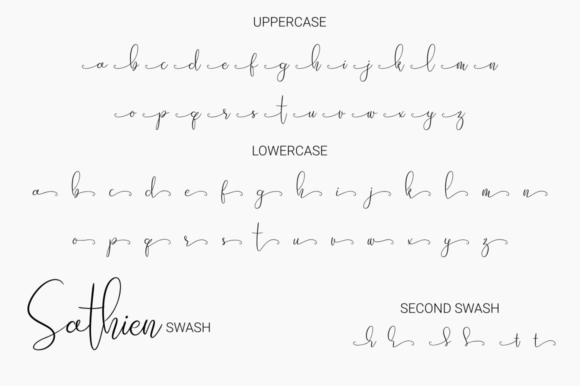 UPPERCASE
a b c d e f g h i j k l m n
o p q r s t u v w x y z
LOWERCASE
a b c d e f g h i j k l m n
o p q r s t u v w x y z
Sathien SWASH
SECOND SWASH
h h s s t t